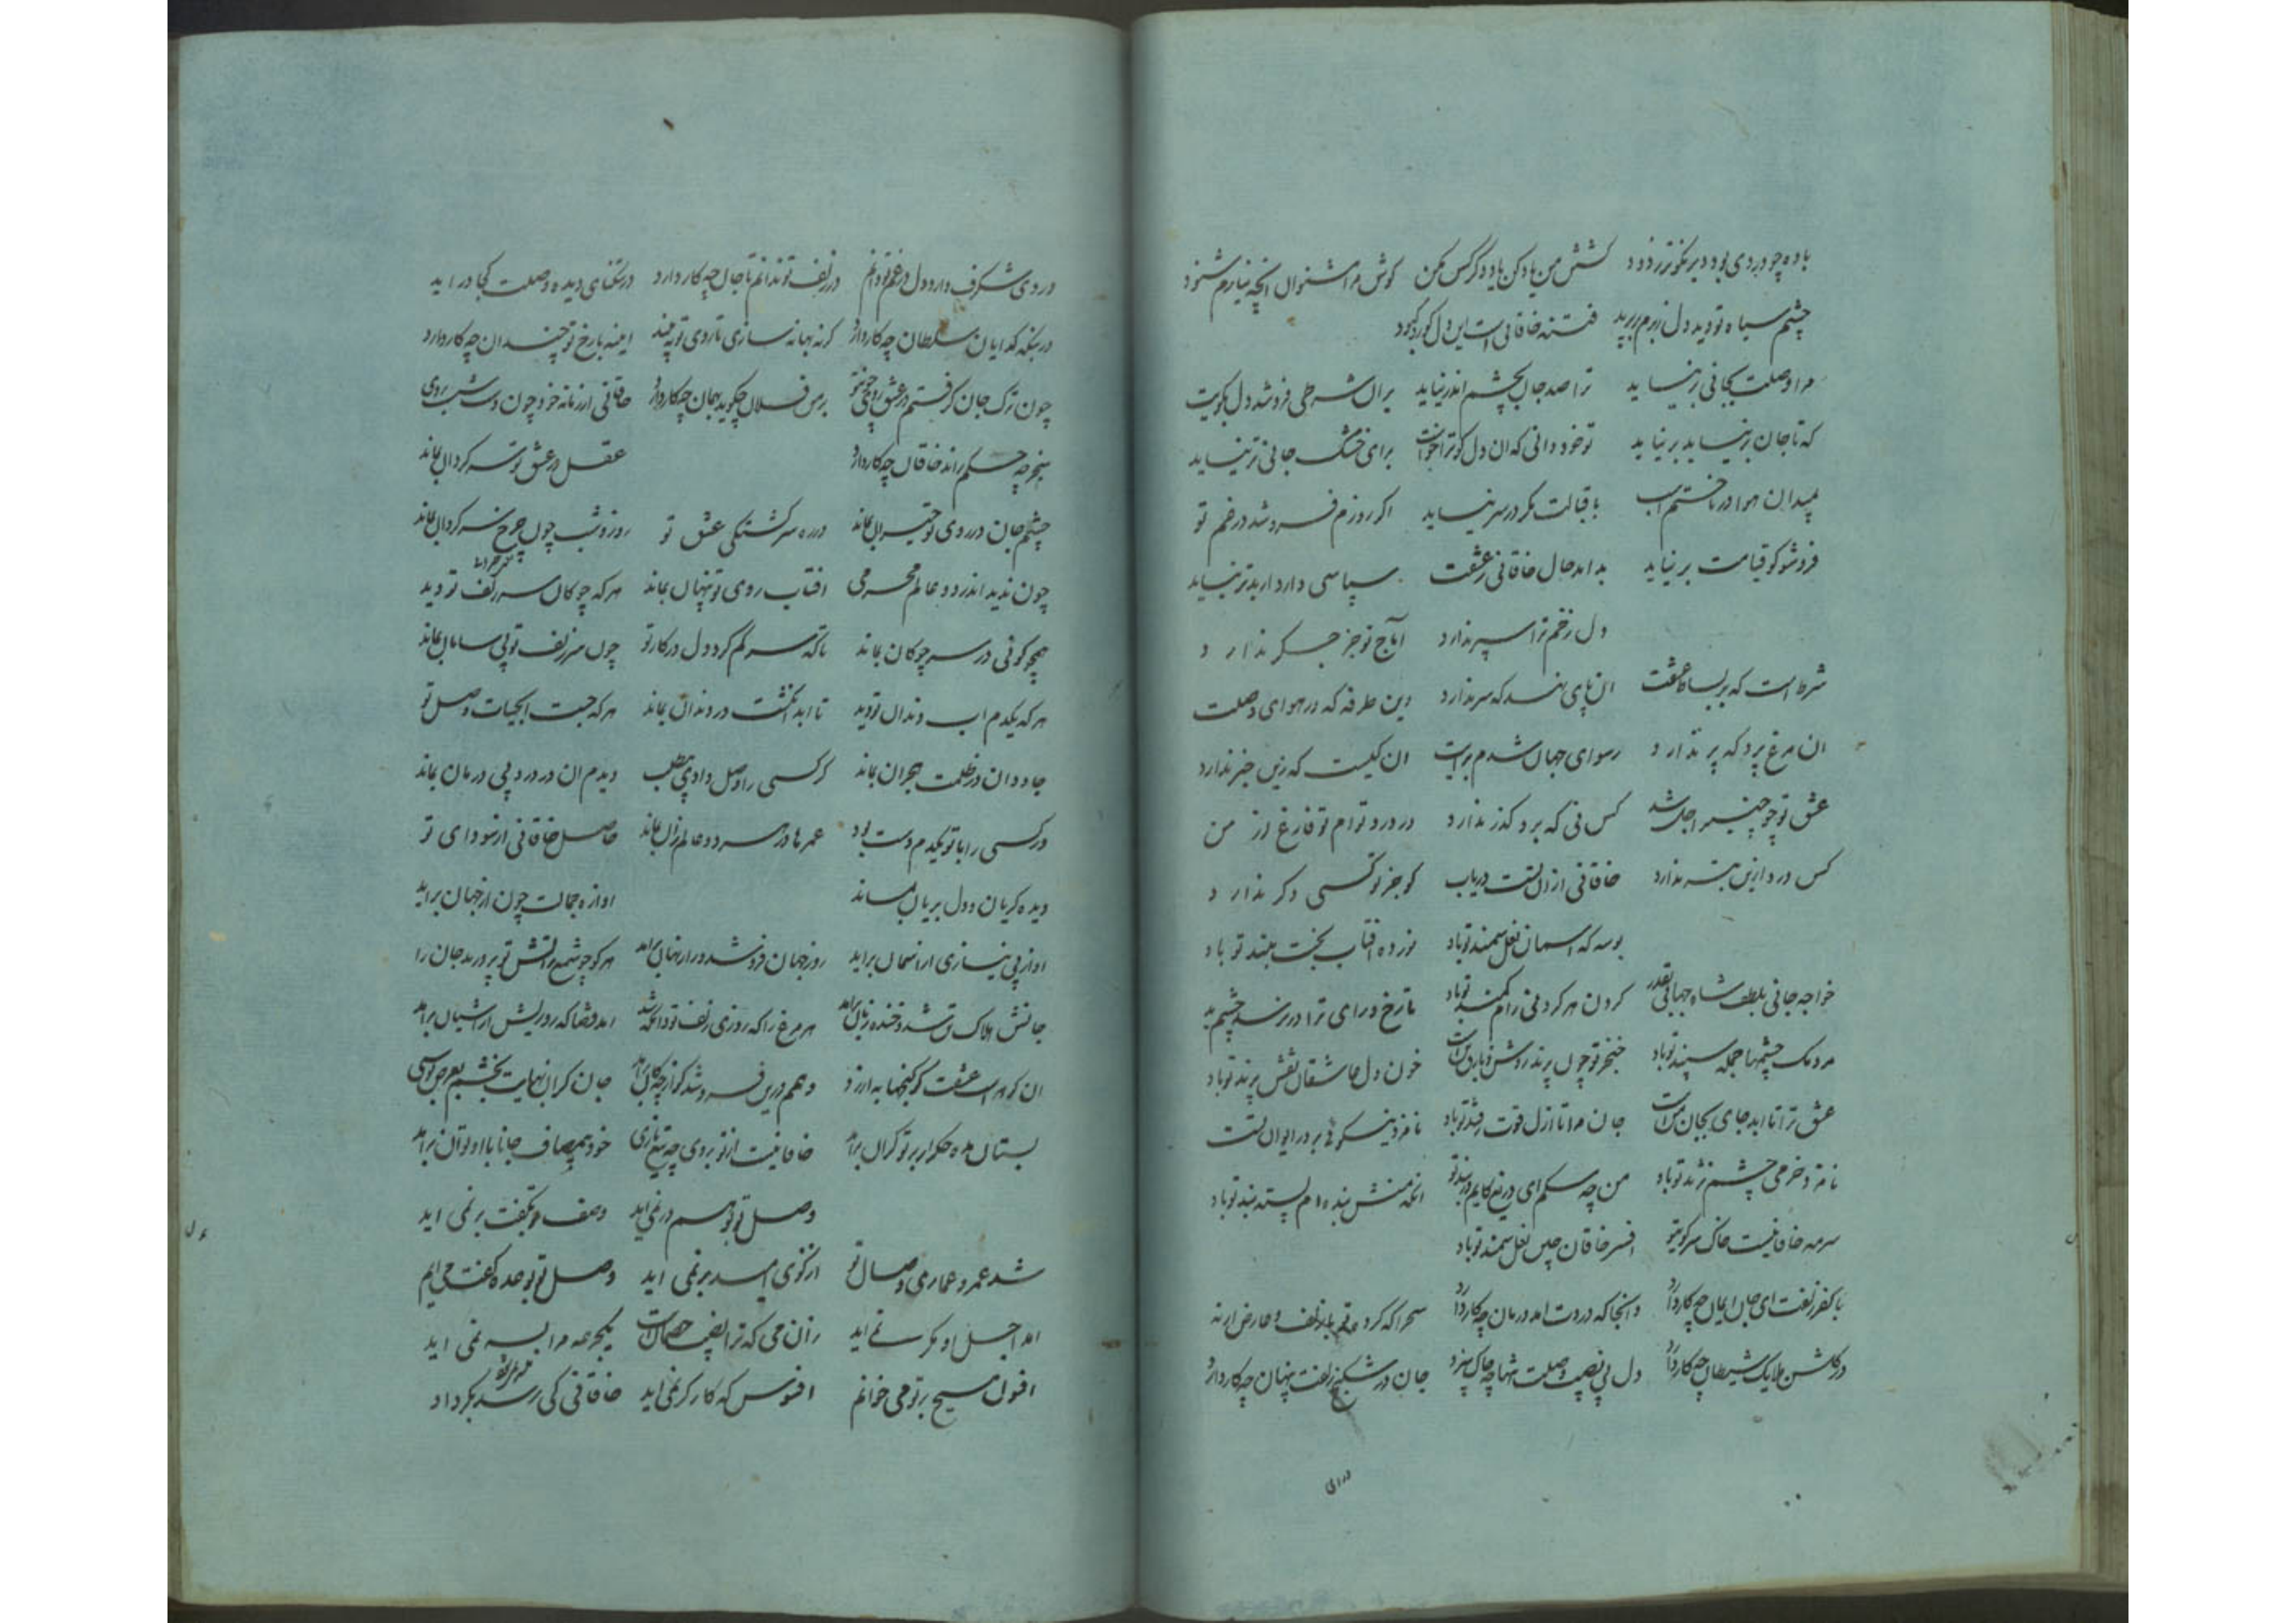 باده چو در دی بود دیر نکوتر زدود کشتی من یاد کن یاد دگر کس مکن گوش مرا مشنوان انچه نیارم شنود
چشم سیاه تو دید دل زبرم برپرید فتنه خاقانی است این دل کور کبود
مرا وصلت بجانی برنیاید ترا صد جان بچشم اندر نیاید بران شرطی فروشد دل بکویت
که تا جان برنیاید برنیاید تو خود دانی که ان دل کو ترا خواست برای خشک جانی تر نیاید
بمیدان هوا در تاختم اسب باقبالت مکر در سر نیاید اکر روزم فروشد در غم تو
فروشو کو قیامت برنیاید بد امد حال خاقانی ز عشقت سپاسی دارد ار بدتر نیاید
دل زخم ترا سپر ندارد آماج تو جز جکر ندارد
شرط است که بر بساط عشقت ان پای نهد که سر ندارد وین طرفه که در هوای وصلت
ان مرغ پرد که پر ندارد رسوای جهان شدم برایت ان کیست که زین خبر ندارد
عشق تو چو چنبر اجل شد کس نی که برو کذر ندارد در درد توام تو فارغ از من
کس درد ازین بتر ندارد خاقانی ازان تست دریاب کو جز تو کسی دکر ندارد
بوسه که اسمان نعل سمند تو باد نور ده افتاب بخت بلند تو باد
خواجه جانی بلطف شاه جهانی بقدر کردن هر کردنی رام کمند تو باد تا رخ و رای ترا در نرسد چشم بد
مردمک چشمها جمله سپند تو باد خنجر تو چون پرند روشن و باریک است خون دل عاشقان نقش پرند تو باد
عشق ترا تا ابد جای بجان من است جان مرا تا ازل قوت ز قند تو باد تا مژه نیکوئی بر در ایوان تست
تا مژه خرمی چشم نژند تو باد من چه سکم ای دریغ کایم دربند تو انکه منش بنده ام بسته بند تو باد
سرمه خاقانیست خاک سر کوی تو افسر خاقان چین نعل سمند تو باد
با کفر زلفت ای جان ایمان چه کار دارد و انجا که دردت امد درمان چه کار دارد سحرا که کرد
در کلشن ملایک شیطان چه کار دارد دل بی نصیب وصلت جان در شکنج زلفت پنهان چه کار دارد
درای
دردی شکرف دارد دل در غم تو دایم در زلف تو ندانم تا جان چه کار دارد در تنکنای دیده وصلت کجا دراید
در بنکه کدایان سلطان چه کار دارد کر نه بهانه سازی تا روی تو نبیند ایینه با رخ تو چندان چه کار دارد
چون ترک جان کرفتم در عشق روی چون تو بر من فلان چکوید بهمان چکار دارد خاقانی از زمانه خود چون دست شست روی
سنجر چه حکم راند خاقان چه کار دارد عقل در عشق تو سرکردان بماند
چشم جان در روی تو حیران بماند در ره سرکشتکی عشق تو روز و شب چون چرخ سرکردان بماند
چون ندید اندر دو عالم محرمی افتاب روی تو پنهان بماند هر که چوکان سر زلف تو دید
همچو کوئی در سر چوکان بماند تا که سر کم کرد دل در کار تو چون سر زلف تو بی سامان بماند
هر که یکدم اب دندان تو دید تا ابد انکشت در دندان بماند هر که جست ابحیات وصل تو
جاودان در ظلمت هجران بماند کر کسی را وصل دادی بی طلب دیدم ان در درد بی درمان بماند
ور کسی را با تو یکدم دست بود عمرها در هر دو عالم زان بماند حاصل خاقانی از سودای تو
دیده کریان و دل بریان بماند اوازه جمالت چون از جهان براید
اواز بی نیازی از اسمان براید روز جهان فروشد هر کو چو شمع زاتش تو پرورید جان را
جانش هلاک تن شد و خنده زنان براید هر مرغ را که روزی زلف تو دانه شد
ان کوهر است عشقت کو کنجها به ارزد وهم درین فروشد جان کران بهایت بخشم
بستان مده حکم بر تو کران براید خاقانیست از تو خود هم مصاف جانا با او توان براید
وصل تو بوهم در نمی اید وصف تو بکفت بر نمی اید
شد عمر و عماری وصال تو از کوی امید بر نمی اید وصل تو بوعده کفت می ایم
امد اجل او مکر نمی اید زان می که ترا نصیب خصمان است یکجرعه مرا بسر نمی اید
افسون مسیح بر تو می خوانم افسوس که کارکر نمی اید خاقانی کی رسد بکرد او